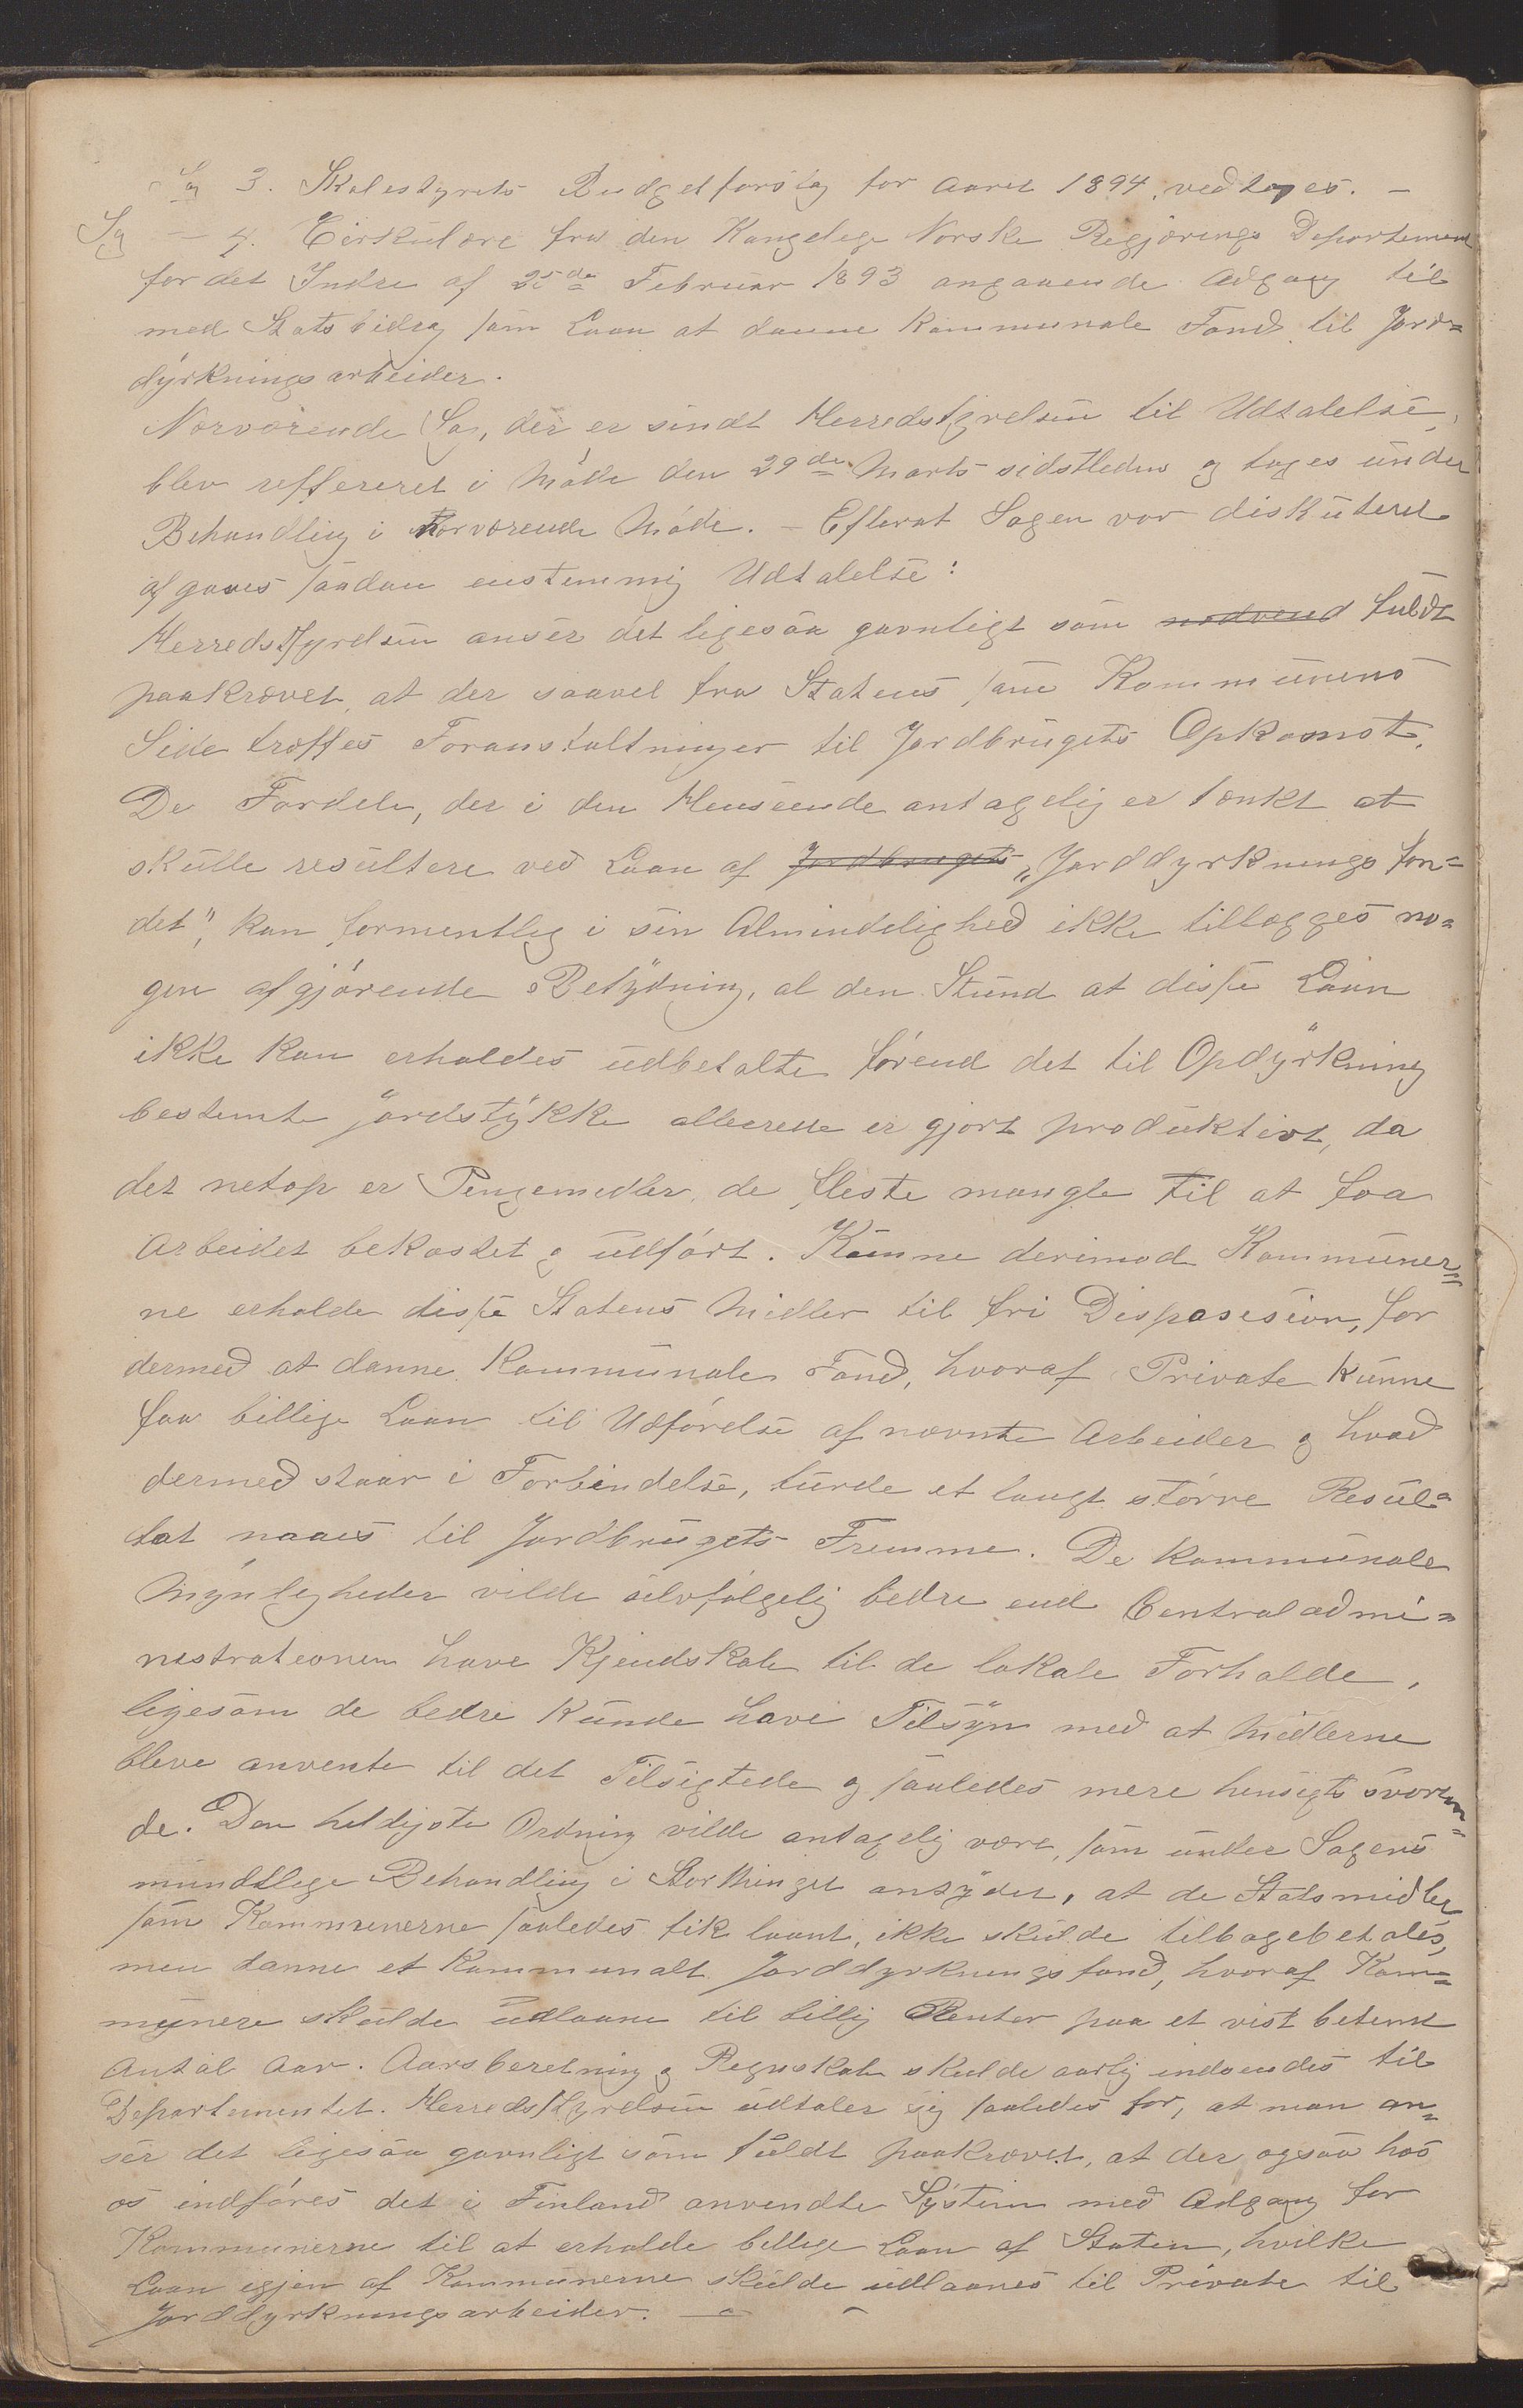 Sag 3. Skolestyrets Budgetforslag for Aaret 1894, vedtoges. —
Sag — 4. Cirkulære fra den Kongelige Norske Regjerings Departement
for det Indre af 25de Februar 1893 angaaende Adgang til
med Statsbidrag som Laan at danne kommunale Fond til Jord=
dyrkningsarbeider.
Nærværende Sag, der er sendt Herredstyrelsen til Udtalelse,
blev reffereret i Møde den 29de Marts sidstleden og toges under
Behandling i nærværende Møde. — Efterat Sagen var diskuteret
afgaves saadan enstemmig Udtalelse:
Herredsstyrelsen anser det ligesaa gavnligt som nødvend fuldt
paakrævet, at der saavel fra Statens som Kommunens
Side træffes Foranstaltninger til Jordbrugets Opkomst.
De Fordele, der i den Henseende antagelig er tænkt at
skulle resultere ved Laan af Jordbrugets „Jorddyrkningsfon=
det", kan formentlig i sin Almindelighed ikke tillægges no=
gen afgjørende Betydning, al den Stund at disse Laan
ikke kan erholdes udbetalte førend det til Opdyrkning
bestemte jordstykke allerede er gjort produktivt, da
det netop er Pengemidler de fleste mangle til at faa
Arbeidet bekostet og udført. Kunne derimod Kommuner=
ne erholde disse Statens Midler til fri Disposision, for
dermed at danne kommunale Fond, hvoraf Private kunne
faa billige Laan til Udførelse af nævnte Arbeider og hvad
dermed staar i Forbindelse, turde et langt større Resul=
tat naaes til Jordbrugets Fremme. De kommunale
Myntigheder vilde selvfølgelig bedre end Centraladmi=
nistrationen have Kjendskab til de lokale Forholde,
ligesom de bedre kunde have Tilsyn med at Midlerne
bleve anvente til det Tilsigtede og saaledes mere hensigtsvaren=
de. Den heldigste Ordning vilde antagelig være, som under Sagens
mundtlige Behandling i Storthinget antydet, at de Statsmidler
som Kommunerne saaledes fik laant, ikke skulde tilbagebetales,
men danne et Kommunalt Jorddyrkningsfond, hvoraf Kom=
munene skulde udlaane til billig Renter paa et vist betemt
Antal Aar. Aarsberetning og Regnskab skulde aarlig indsendes til
Departementet. Herredsstyrelsen udtaler sig saaledes for, at man an=
ser det ligesaa gavnligt som fuldt paakrævet, at der ogsaa hos
os indføres det i Finland anvendte System med Adgang for
Kommunerne til at erholde billige Laan af Staten, hvilke
Laan igjen af Kommunerne skulde udlaanes til Private til
Jorddyrkningsarbeider. —